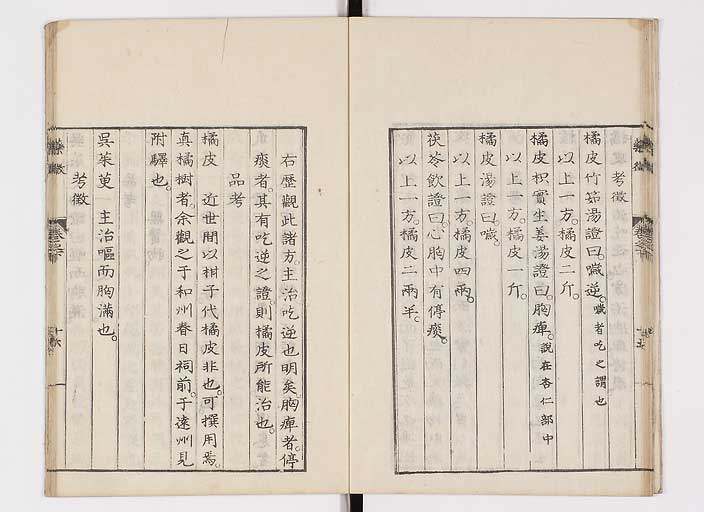 考徵
橘皮竹茹湯證曰。噦逆。噦者吃之謂也
以上一方。橘皮二斤。
橘皮枳實生姜湯證曰。胸痺。說在杏仁部中
以上一方。橘皮一斤。
橘皮湯證曰。噦。
以上一方。橘皮四兩。
茯苓飲證曰。心胸中有停痰。
以上一方。橘皮二兩半。
右歷觀此諸方。主治吃逆也明矣。胸痺者。停
痰者。其有吃逆之證。則橘皮所能治也。
品考
橘皮 近世間以柑子代橘皮非也。可撰用焉。
真橘樹者。余觀之于和州春日祠前。于遠州見
附驛也。
吳茱萸 主治嘔而胸滿也。
考徵
藥徵
十六